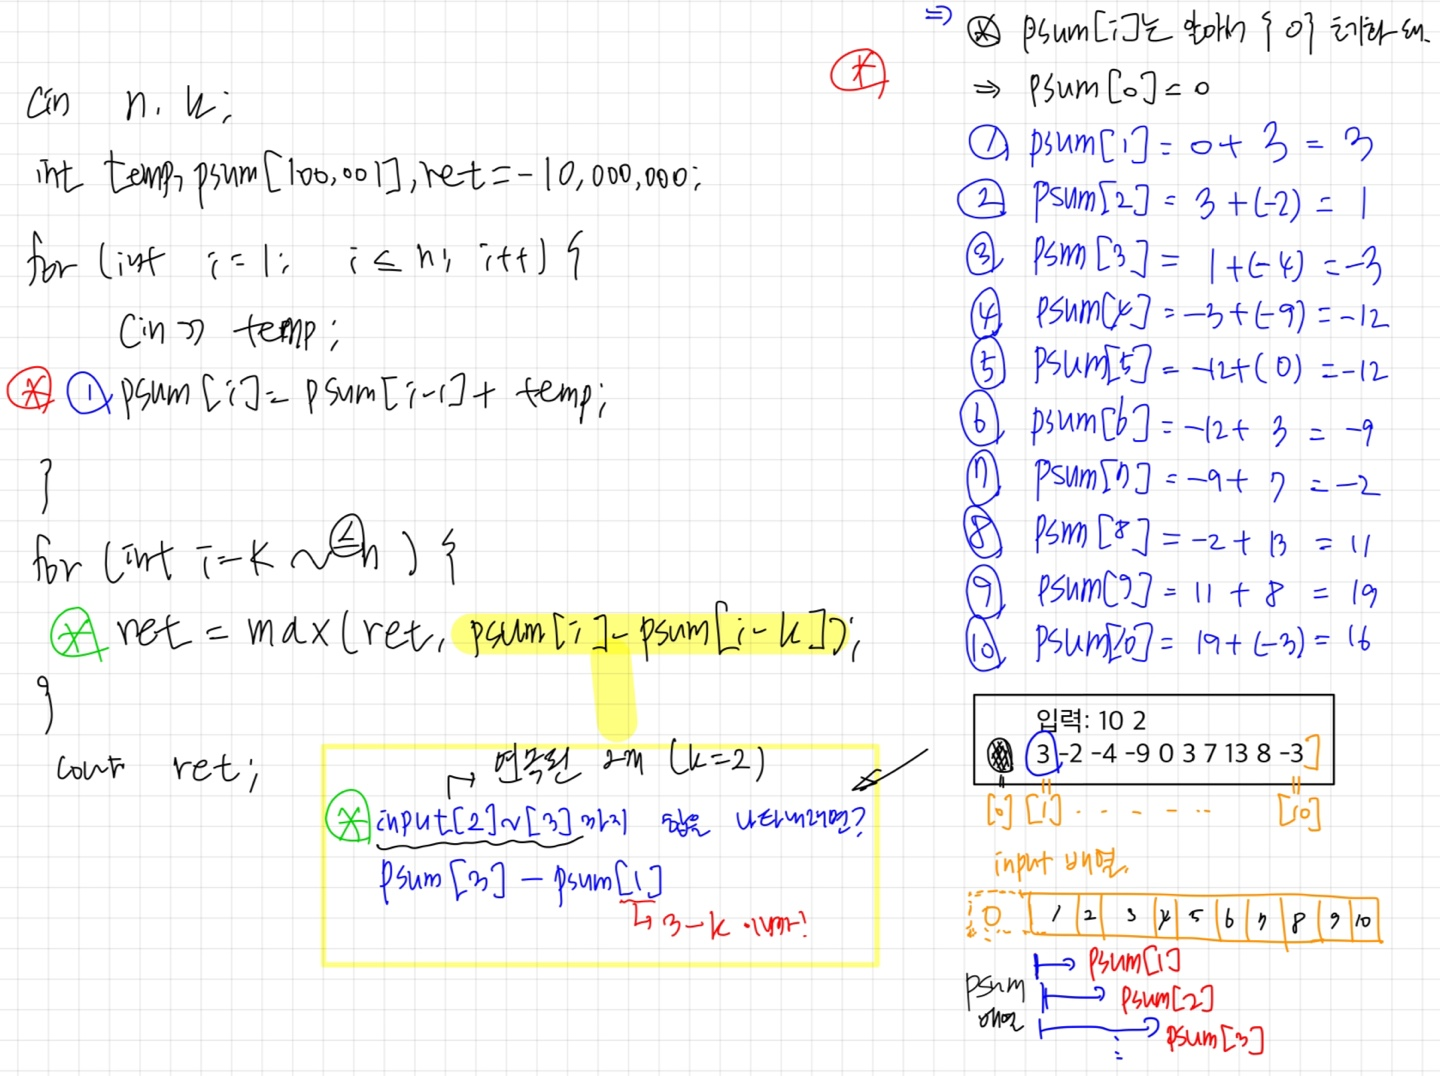 cin n, k;
int temp, psum[100,001], ret = -10,000,000;
for (int i=1; i≤n; i++) {
cin >> temp;
① psum[i] = psum[i-1] + temp;
}
for (int i=k ~ ≤n ) {
ret = max(ret, psum[i] - psum[i-k]);
}
cout ret;
연속된 2개 (k=2)
input[2]~[3] 까지 합을 나타내려면?
psum[3] - psum[1]
3-k 이니까!
⇒ psum[i]는 {0} 초기화
⇒ psum[0] = 0
① psum[1] = 0 + 3 = 3
② psum[2] = 3 + (-2) = 1
③ psm[3] = 1 + (-4) = -3
④ psum[4] = -3 + (-9) = -12
⑤ psum[5] = -12 + (0) = -12
⑥ psum[6] = -12 + 3 = -9
⑦ psum[7] = -9 + 7 = -2
⑧ psm[8] = -2 + 13 = 11
⑨ psum[9] = 11 + 8 = 19
⑩ psum[10] = 19 + (-3) = 16
입력: 10 2
3 -2 -4 -9 0 3 7 13 8 -3
[0] [1] - - - - - - [10]
input 배열
0 1 2 3 4 5 6 7 8 9 10
psum
배열
psum[1]
psum[2]
psum[3]